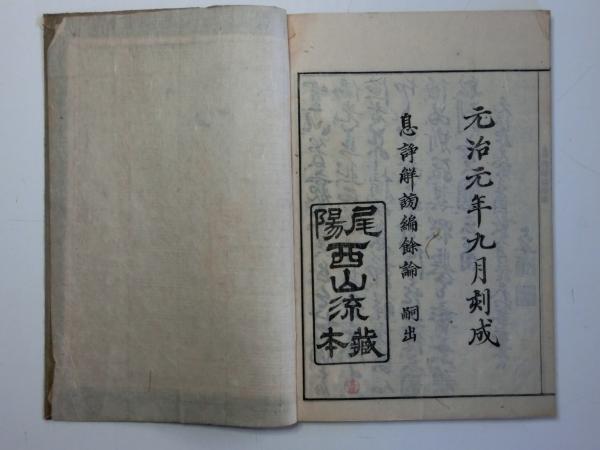 元治元年九月刻成
息諍解謗編餘論 嗣出
尾陽
西山流
藏本